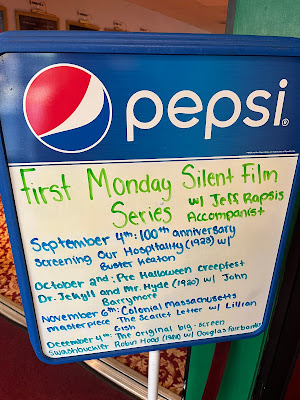 pepsi®
First Monday Silent Film
Series w/ Jeff Rapsis
Accompanist
September 4th: 100th anniversary
screening Our Hospitality (1923) w/
Buster Keaton
October 2nd: Pre Halloween Creepfest
Dr. Jekyll and Mr. Hyde (1920) w/ John
Barrymore
November 6th: Colonial Massachusetts
masterpiece The Scarlet Letter w/ Lillian
Gish
December 4th: The original big-screen
swashbuckler Robin Hood w/ Douglas Fairbanks